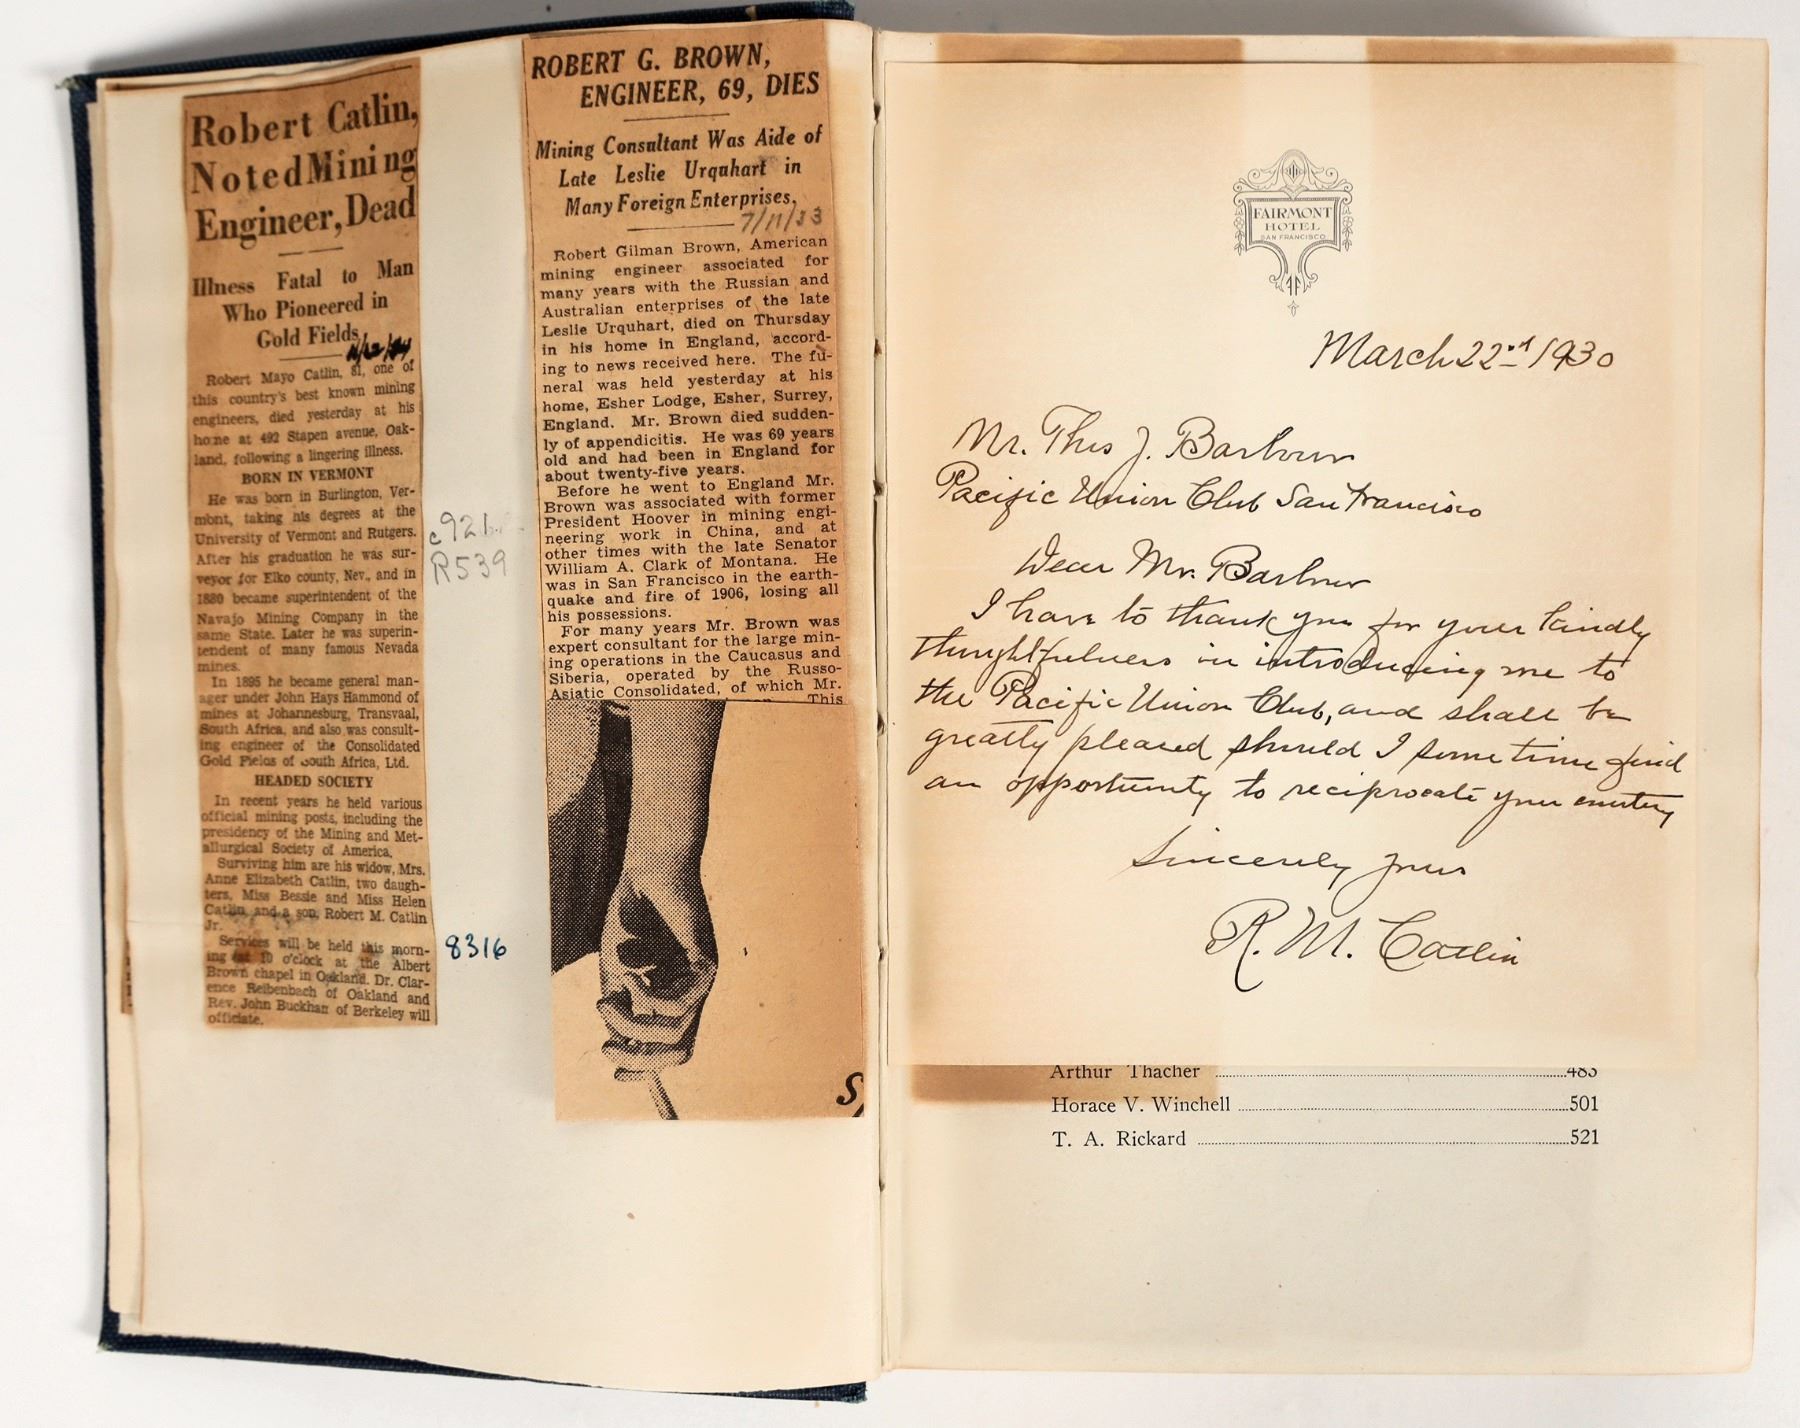 Robert Catlin,
Noted Mining
Engineer, Dead
Illness Fatal to Man
Who Pioneered in
Gold Fields
Robert Mayo Catlin, 81, one of
this country's best known mining
engineers, died yesterday at his
home at 492 Stapen avenue, Oak-
land, following a lingering illness.
BORN IN VERMONT
He was born in Burlington, Ver-
mont, taking his degrees at the
University of Vermont and Rutgers.
After his graduation he was sur-
veyor for Elko county, Nev., and in
1880 became superintendent of the
Navajo Mining Company in the
same State. Later he was superin-
tendent of many famous Nevada
mines.
In 1895 he became general man-
ager under John Hays Hammond of
mines at Johannesburg, Transvaal,
South Africa, and also was consult-
ing engineer of the Consolidated
Gold Fields of South Africa, Ltd.
HEADED SOCIETY
In recent years he held various
official mining posts, including the
presidency of the Mining and Met-
allurgical Society of America.
Surviving him are his widow, Mrs.
Anne Elizabeth Catlin, two daugh-
ters, Miss Bessie and Miss Helen
Catlin, and a son, Robert M. Catlin
Jr.
Services will be held this morn-
ing at 10 o'clock at the Albert
Brown chapel in Oakland. Dr. Clar-
ence Reibenbach of Oakland and
Rev. John Buckhan of Berkeley will
officiate.
c921.
R539
8316
ROBERT G. BROWN,
ENGINEER, 69, DIES
Mining Consultant Was Aide of
Late Leslie Urquhart in
Many Foreign Enterprises.
7/11/33
Robert Gilman Brown, American
mining engineer associated for
many years with the Russian and
Australian enterprises of the late
Leslie Urquhart, died on Thursday
in his home in England, accord-
ing to news received here. The fu-
neral was held yesterday at his
home, Esher Lodge, Esher, Surrey,
England. Mr. Brown died sudden-
ly of appendicitis. He was 69 years
old and had been in England for
about twenty-five years.
Before he went to England Mr.
Brown was associated with former
President Hoover in mining engi-
neering work in China, and at
other times with the late Senator
William A. Clark of Montana. He
was in San Francisco in the earth-
quake and fire of 1906, losing all
his possessions.
For many years Mr. Brown was
expert consultant for the large min-
ing operations in the Caucasus and
Siberia, operated by the Russo-
Asiatic Consolidated, of which Mr.
This
S
FAIRMONT
HOTEL
SAN FRANCISCO
March 22nd 1930
Mr. Thos J. Barbour
Pacific Union Club San Francisco
Dear Mr. Barbour
I have to thank you for your kindly
thoughtfulness in introducing me to
the Pacific Union Club, and shall be
greatly pleased should I some time find
an opportunity to reciprocate your courtesy
Sincerely yours
R. M. Catlin
Arthur Thacher 485
Horace V. Winchell 501
T. A. Rickard 521